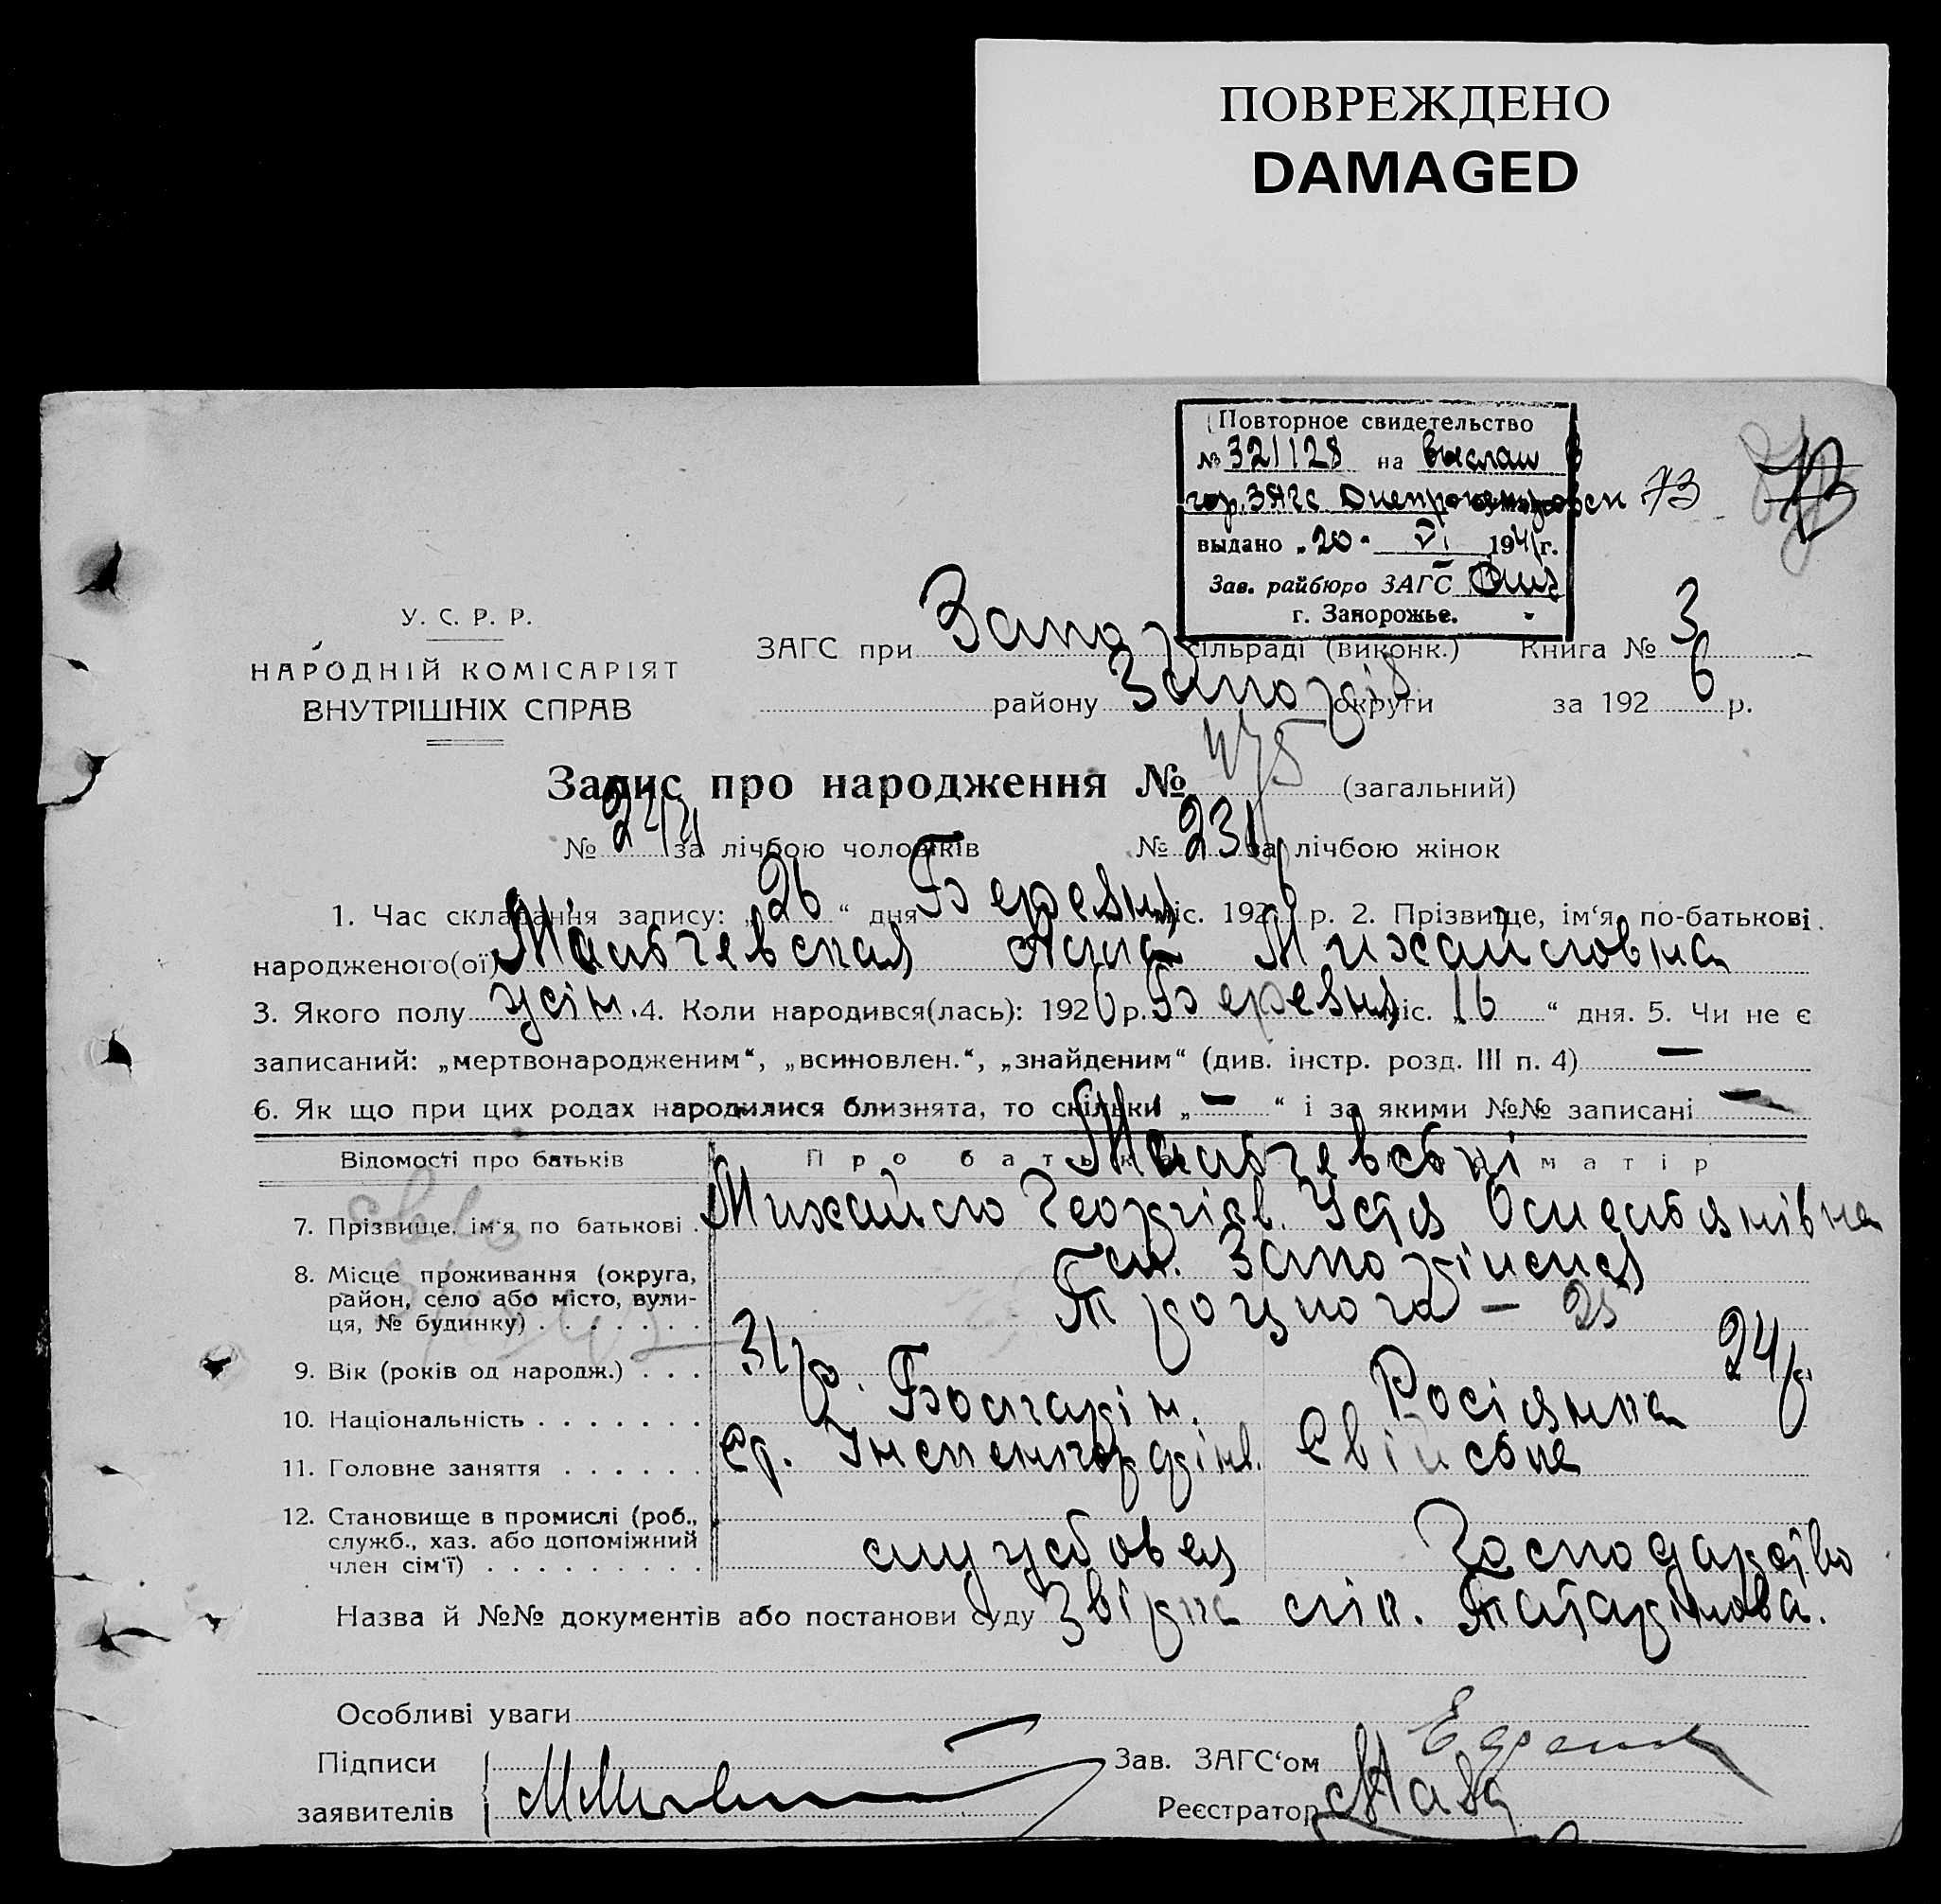 ПОВРЕЖДЕНО
DAMAGED
Повторное свидетельство
№ 321128 на выслан в
гор. ЗАГС Днепропетровск 73
выдано „20“ VI 1941 г.
Зав. райбюро ЗАГС
г. Запорожье.
У. С. Р. Р.
НАРОДНІЙ КОМІСАРІЯТ
ВНУТРІШНІХ СПРАВ
ЗАГС при Запор сільраді (виконк.) Книга № 3
району Запоріз округи за 1926 р.
Запис про народження № 475 (загальний)
№ 244 за лічбою чоловіків № 231 за лічбою жінок
1. Час складання запису: „26“ дня Березня міс. 1926 р. 2. Прізвище, ім‘я, по-батькові
народженого(ої) Михайловна
3. Якого полу жін. 4. Коли народився(лась): 1926 р. Березня міс. „16“ дня. 5. Чи не є
записаний: „мертвонародженим“, „всиновлен.“, „знайденим“ (див. інстр. розд. III п. 4) —
6. Як що при цих родах народилися близнята, то скільки „—“ і за якими №№ записані —
Відомості про батьків Про батька матір
7. Прізвище, ім‘я по батькові . Михайло Георгієв. Устя
8. Місце проживання (округа, ст. Запоріжжя
район, село або місто, вули- Троцького — 25
ця, № будинку) . . . . . . .
9. Вік (років од народж.) . . . 31 р. 24 р.
10. Національність . . . . . . . Болгарін. Росіянка
11. Головне заняття . . . . . .
12. Становище в промислі (роб.,
служб., хаз. або допоміжний службовец Господарство
член сім‘ї) . . . . . . . . .
Назва й №№ документів або постанови суду лік.
Особливі уваги
Підписи Зав. ЗАГС‘ом
заявителів Реєстратор